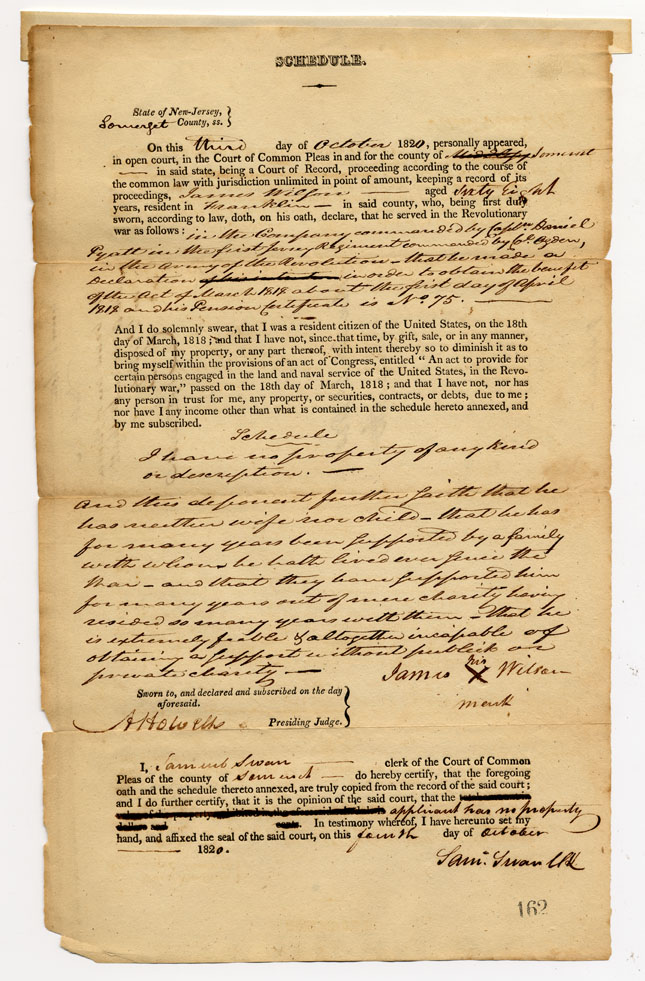 SCHEDULE.
State of New-Jersey, }
Somerset County, ss. }
On this third day of October 1820, personally appeared,
in open court, in the Court of Common Pleas in and for the county of Middlesex Somerset
— in said state, being a Court of Record, proceeding according to the course of
the common law with jurisdiction unlimited in point of amount, keeping a record of its
proceedings, James Wilson — aged sixty eight
years, resident in Franklin — in said county, who, being first duly
sworn, according to law, doth, on his oath, declare, that he served in the Revolutionary
war as follows: in the Company commanded by Captn Daniel
Pyatt in the first Jersey Regiment commanded by Col. Ogden,
in the Army of the Revolution – that he made a
Declaration in order to obtain the benefit
of the Act of March 1818 about the first day of April
1818 and his Pension Certificate is No. 75. —
And I do solemnly swear, that I was a resident citizen of the United States, on the 18th
day of March, 1818; and that I have not, since that time, by gift, sale, or in any manner,
disposed of my property, or any part thereof, with intent thereby so to diminish it as to
bring myself within the provisions of an act of Congress, entitled "An act to provide for
certain persons engaged in the land and naval service of the United States, in the Revo-
lutionary war," passed on the 18th day of March, 1818; and that I have not, nor has
any person in trust for me, any property, or securities, contracts, or debts, due to me;
nor have I any income other than what is contained in the schedule hereto annexed, and
by me subscribed.
Schedule
I have no property of any kind
or description. —
And this deponent further saith that he
has neither wife nor child – that he has
for many years been supported by a family
with whom he hath lived ever since the
War – and that they have supported him
for many years out of mere charity having
resided so many years with them – that he
is extremely feeble & altogether incapable of
obtaining a support without publick or
private charity —
James his X Wilson
mark
Sworn to, and declared and subscribed on the day
aforesaid.
A Howell Presiding Judge. }
I, Samuel Swan — clerk of the Court of Common
Pleas of the county of Somerset — do hereby certify, that the foregoing
oath and the schedule thereto annexed, are truly copied from the record of the said court;
and I do further certify, that it is the opinion of the said court, that the
applicant has no property
In testimony whereof, I have hereunto set my
hand, and affixed the seal of the said court, on this fourth day of October
— 1820.
Saml. Swan Clk
162